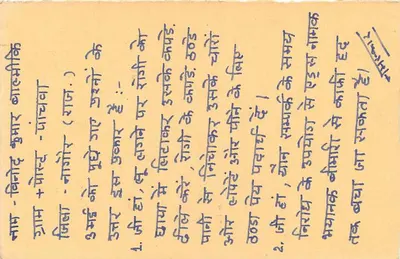 नाम - विनोद कुमार बाल्मीकि
ग्राम + पोस्ट - पांचवा
जिला - नागौर (राज.)
3 मई को पूछे गए प्रश्नों के
उत्तर इस प्रकार हैं :-
1. जी हां, लू लगने पर रोगी को
छाया में लिटाकर उसके कपड़े
ढीले करें, रोगी के कपड़े, ठण्डे
पानी में भिगोकर उसके चारों
ओर लपेटें और पीने के लिए
ठण्डा पेय पदार्थ दें।
2. जी हां, यौन सम्पर्क के समय
निरोध के उपयोग से एड्स नामक
भयानक बीमारी से काफी हद
तक बचा जा सकता है।
नमस्कार